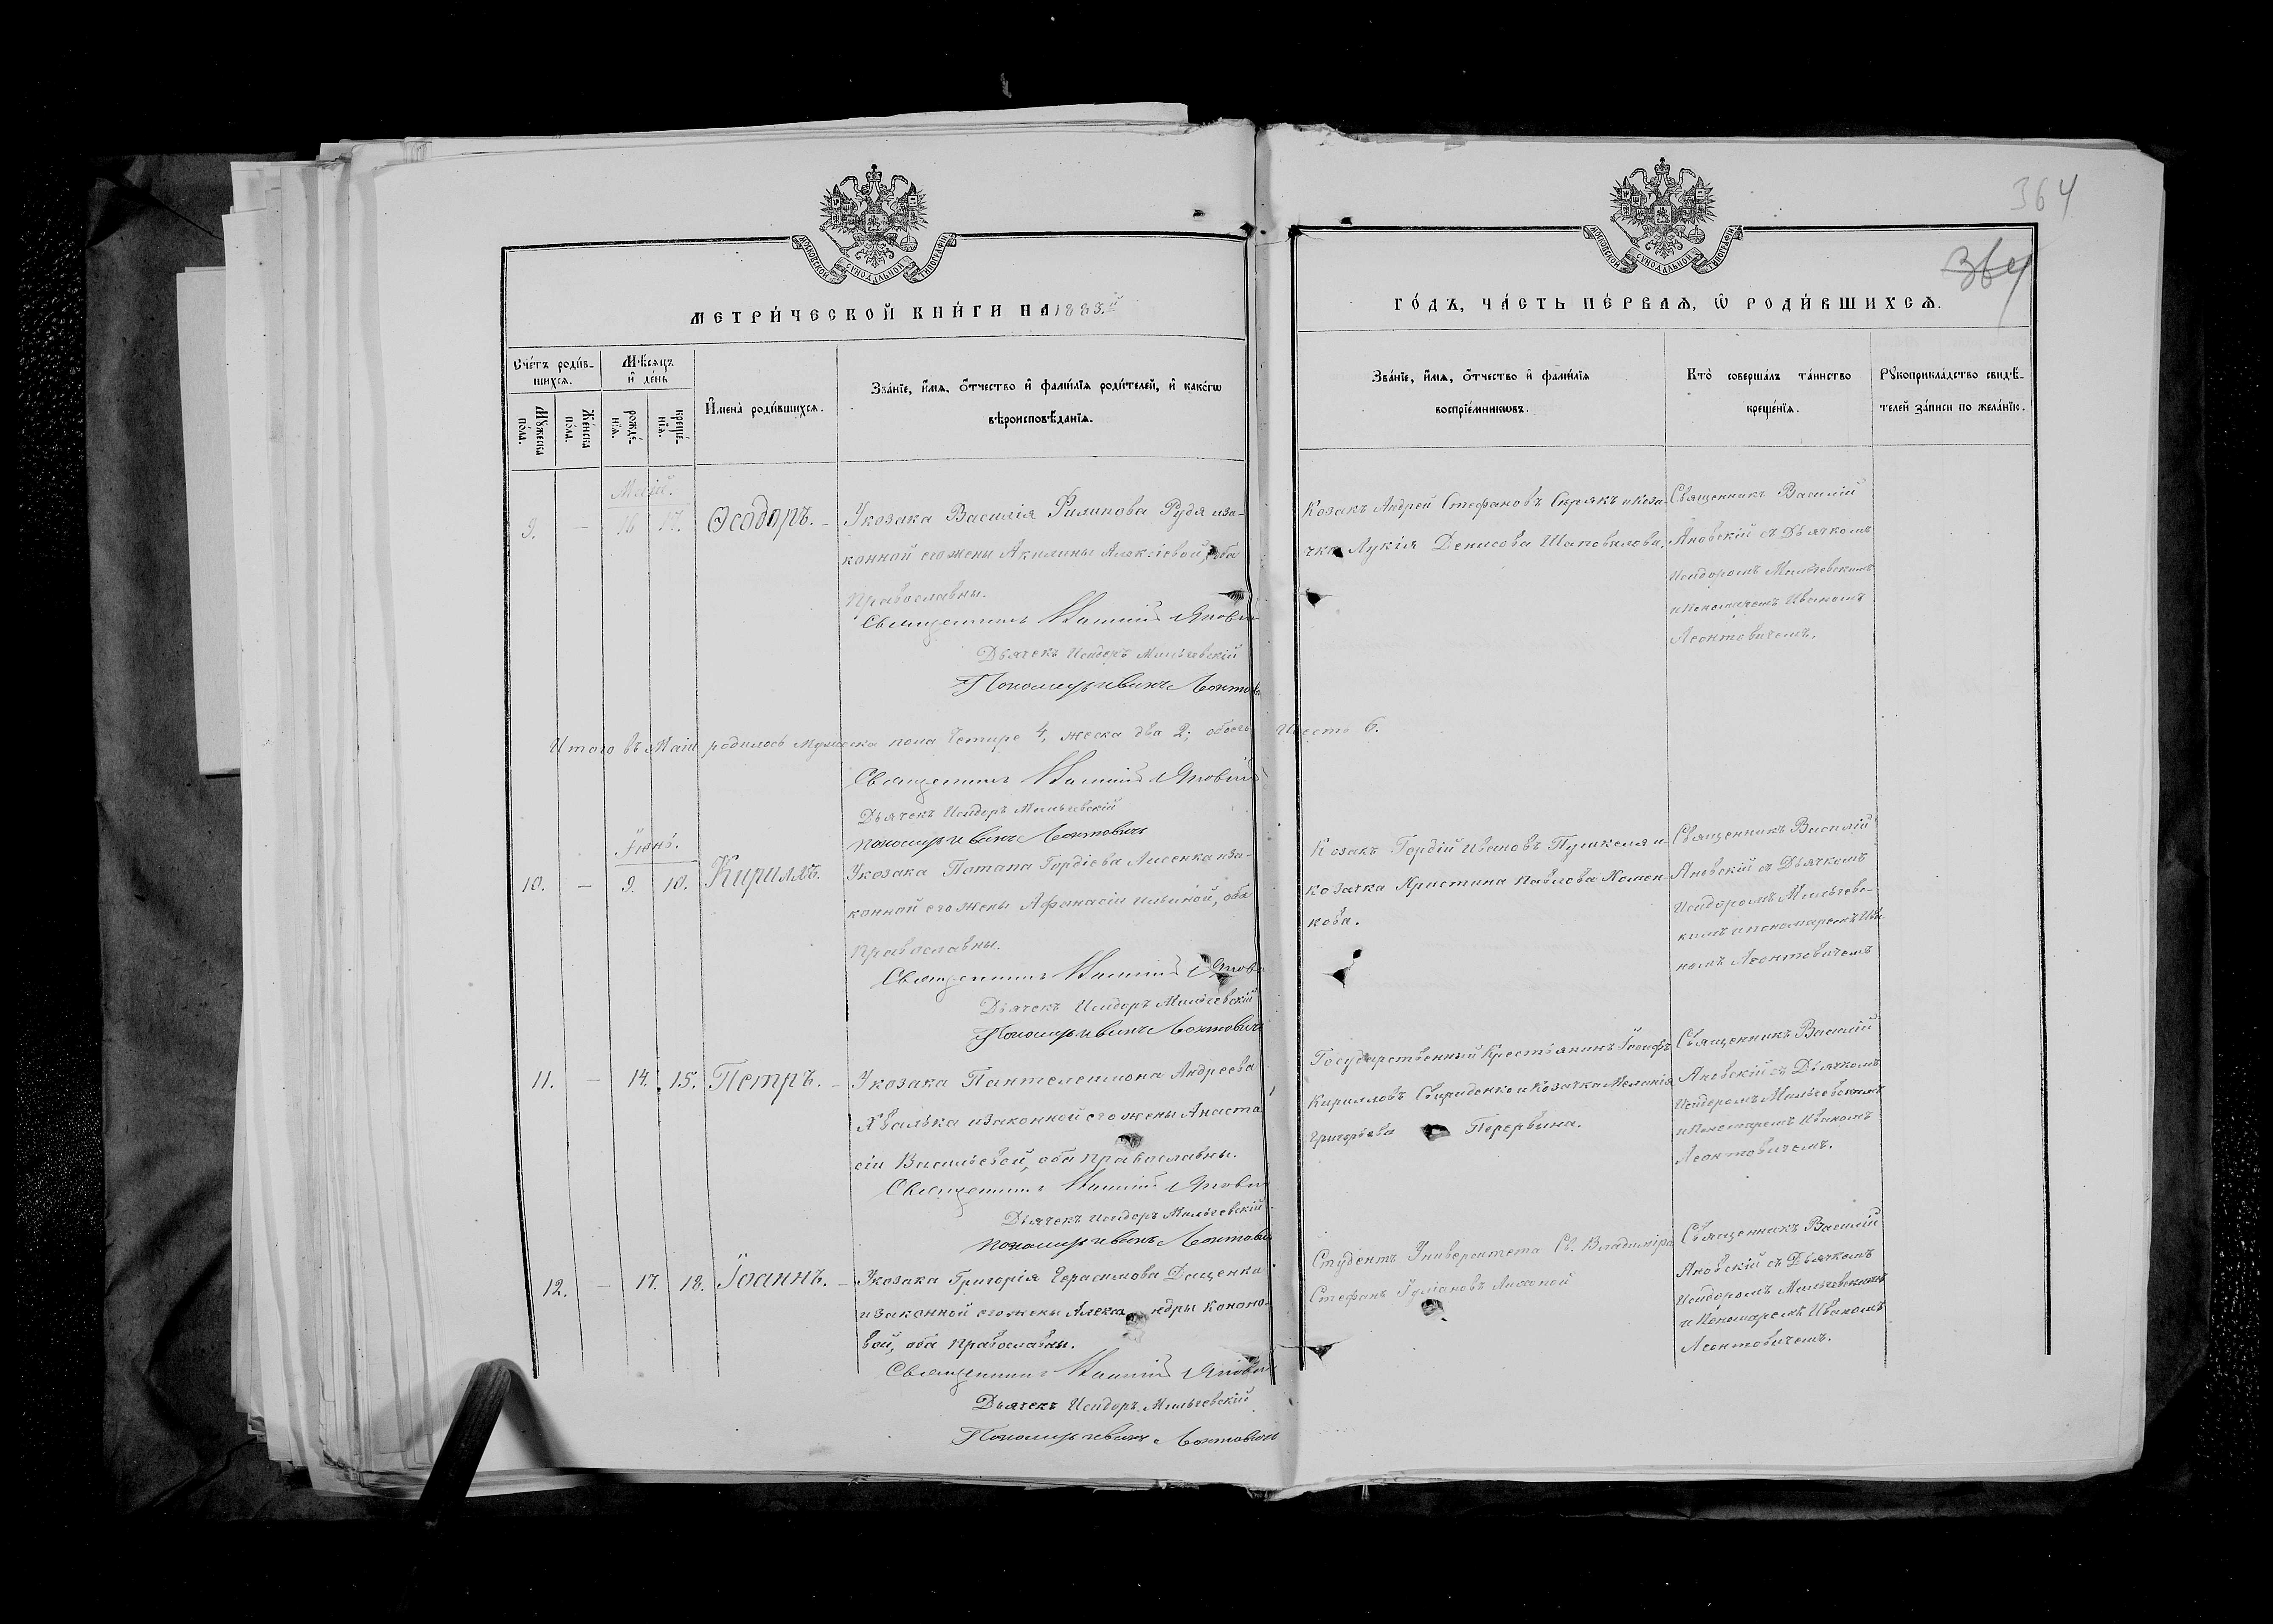 364
364
МОСКОВСКОЙ СѴНОДАЛЬНОЙ ТИПОГРАФІИ
МОСКОВСКОЙ СѴНОДАЛЬНОЙ ТИПОГРАФІИ
МЕТРИ́ЧЕСКОЙ КНИ́ГИ НА 1883.й
ГО́ДЪ, ЧА́СТЬ ПЕ́РВАЯ, Ѡ РОДИ́ВШИХСЯ.
Сче́тъ роди́в-
шихся.
Мꙋжеска по́ла.
Же́нска по́ла.
Мѣ́сяцъ
и҆ де́нь
рожде́-
нїя.
креще́-
нїя.
И҆мена̀ роди́вшихся.
Зва́нїе, и҆́мя, ѻ҆́тчество и҆ фами́лїя роди́телей, и҆ како́гѡ
вѣроисповѣ́данїя.
Зва́нїе, и҆́мя, ѻ҆́тчество и҆ фами́лїя
воспрїе́мникѡвъ.
Кто̀ соверша́лъ та́инство
креще́нїя.
Рꙋкоприкла́дство свидѣ́-
телей за́писи по жела́нїю.
Маій.
9. — 16 17. Ѳеодоръ. —
У козака Василія Филипова Рудя и за-
конной его жены Акилины Алексіевой, оба
православны.
Священникъ Василій Яновскій
Дьячекъ Исидоръ Мильчевскій
Пономарь Иванъ Леонтович
Козакъ Андрей Стефановъ Сирякъ и коза-
чка Лукія Денисова Шаповалова.
Священникъ Василій
Яновскій съ Дьячкомъ
Исидоромъ Мильчевскимъ
и Пономаремъ Иваномъ
Леонтовичемъ.
Итого въ Маіи родилось мужеска пола четыре 4, жеска два 2; обоего шесть 6.
Священникъ Василій Яновскій
Дьячекъ Исидоръ Мильчевскій
Пономарь Иванъ Леонтовичъ
Іюнь.
10. — 9. 10. Кириллъ.
У козака Потапа Гордіева Лисенка и за-
конной его жены Афанасіи Ильиной, оба
православны.
Священникъ Василій Яновскій
Дьячекъ Исидоръ Мильчевскій
Пономарь Иванъ Леонтович
Козакъ Гордій Ивановъ Пушкеля и
козачка Христина Павлова
кова.
Священникъ Василій
Яновскій съ Дьячкомъ
Исидоромъ Мильчевс-
кимъ и пономаремъ Ива-
номъ Леонтовичемъ
11. — 14. 15. Петръ. —
У козака Пантелеимона Андреева
Хвалька и законной его жены Анаста
сіи Васильевой, оба православны.
Священникъ Василій Яновскій
Дьячекъ Исидоръ Мильчевскій
Пономарь Иванъ Леонтович
Государственный Крестьянинъ Іосифъ
Кирилловъ Свириденко и Козачка Меланія
Григорьева Перервина.
Священникъ Василій
Яновскій съ Дьячкомъ
Исидоромъ Мильчевскимъ
и Пономаремъ Иваномъ
Леонтовичемъ.
12. — 17. 18. Іоаннъ. —
У козака Григорія Герасимова Даценка
и законной его жены Александры Кононо-
вой, оба православны.
Священникъ Василій Яновскій
Дьячекъ Исидоръ Мильчевскій
Пономарь Иванъ Леонтовичъ
Студентъ Университета Св. Владиміра
Стефанъ Іуліановъ
Священникъ Василій
Яновскій съ Дьячкомъ
Исидоромъ Мильчевскимъ
и Пономаремъ Иваномъ
Леонтовичемъ.